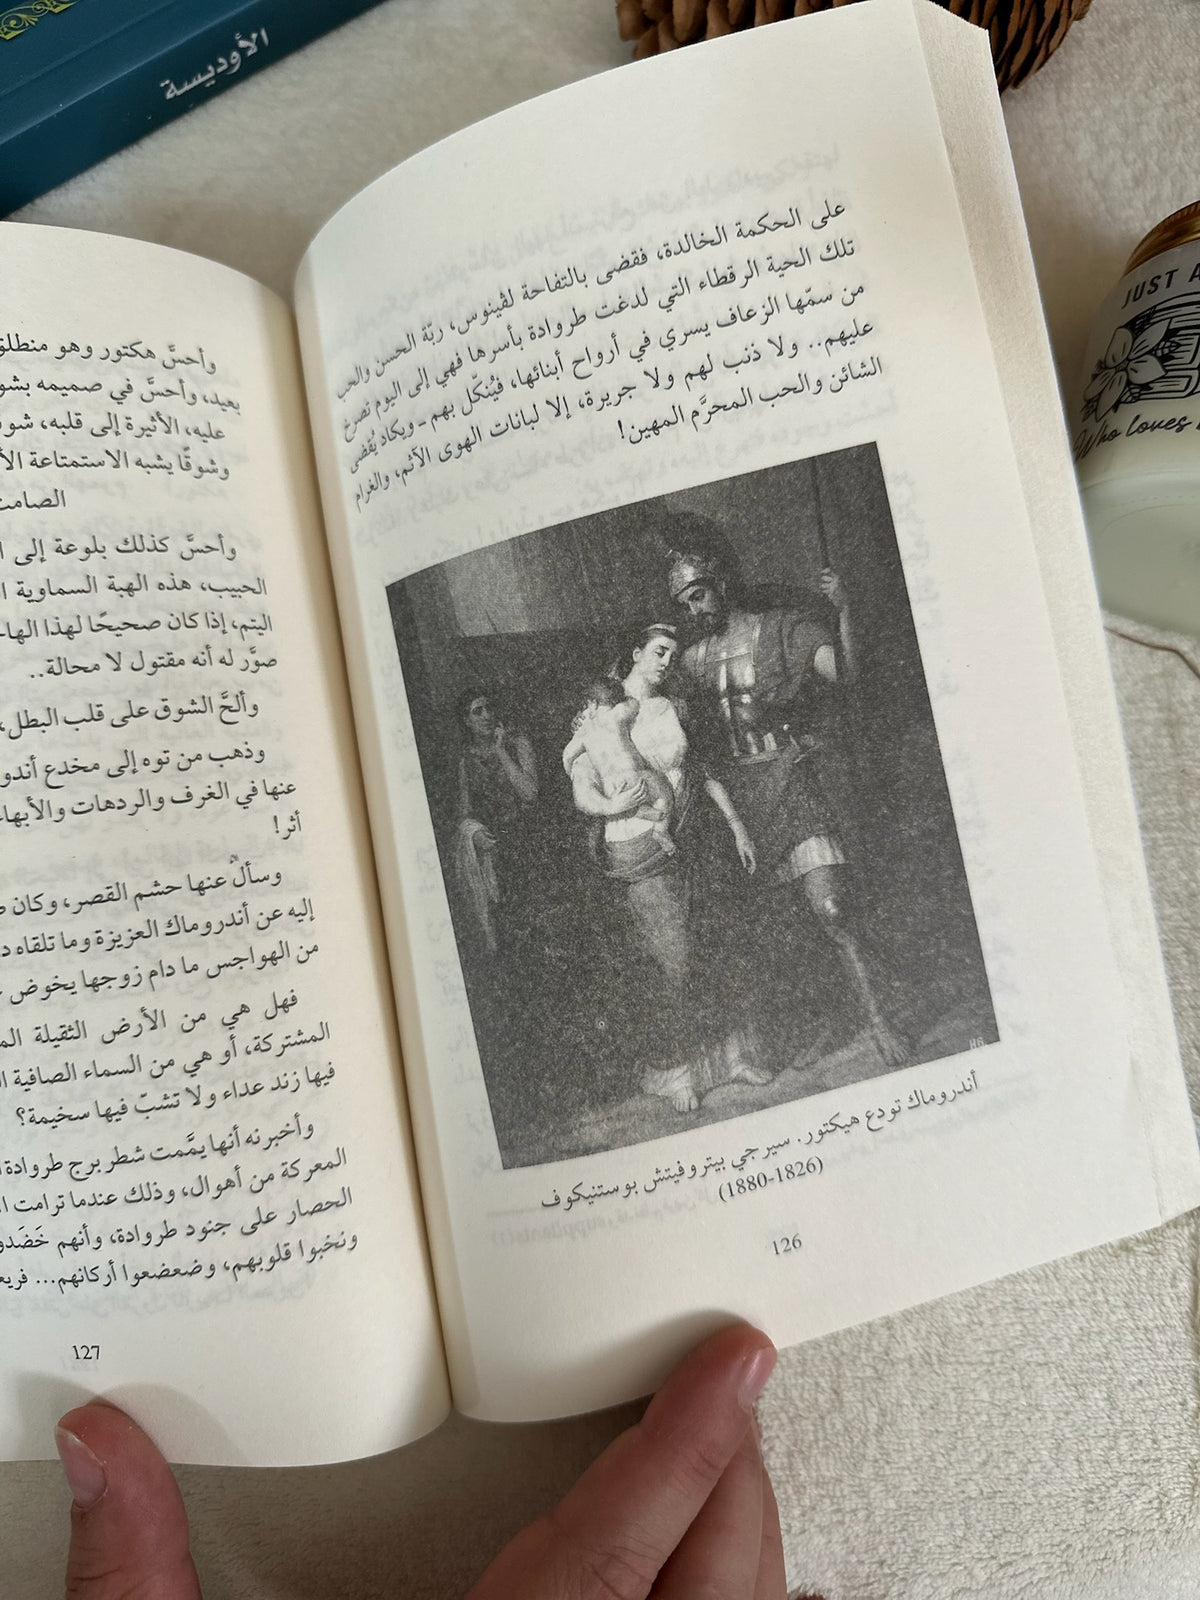 الأوديسة
على الحكمة الخالدة، فقضى بالتفاحة لڤينوس، ربّة الحسن والحب
تلك الحية الرقطاء التي لدغت طروادة بأسرها فهي إلى اليوم تصرخ
من سمّها الزعاف يسري في أرواح أبنائها، فيُنكّل بهم ـ ويكاد يُقضى
عليهم.. ولا ذنب لهم ولا جريرة، إلا لبانات الهوى الآثم، والغرام
الشائن والحب المحرَّم المهين!
HB
أندروماك تودع هيكتور. سيرجي بيتروفيتش بوستنيكوف
(1826-1880)
126
وأحسَّ هكتور وهو منطلق
بعيد، وأحسَّ في صميمه
عليه، الأثيرة إلى قلبه،
وشوقًا يشبه الاستمتاعة
الصامت
وأحسَّ كذلك بلوعة إلى
الحبيب، هذه الهبة السماوية
اليتم، إذا كان صحيحًا لهذا
صوَّر له أنه مقتول لا محالة..
وألحَّ الشوق على قلب البطل،
وذهب من توه إلى مخدع
عنها في الغرف والردهات
أثر!
وسأل عنها حشم القصر، وكان
إليه عن أندروماك العزيزة وما تلقاه
من الهواجس ما دام زوجها يخوض
فهل هي من الأرض الثقيلة
المشتركة، أو هي من السماء الصافية
فيها زند عداء ولا تشبّ فيها سخيمة؟
وأخبرنه أنها يمَّمت شطر برج طروادة
المعركة من أهوال، وذلك عندما ترامت
الحصار على جنود طروادة، وأنهم
ونخبوا قلوبهم، وضعضعوا أركانهم...
127
JUST A
Who loves